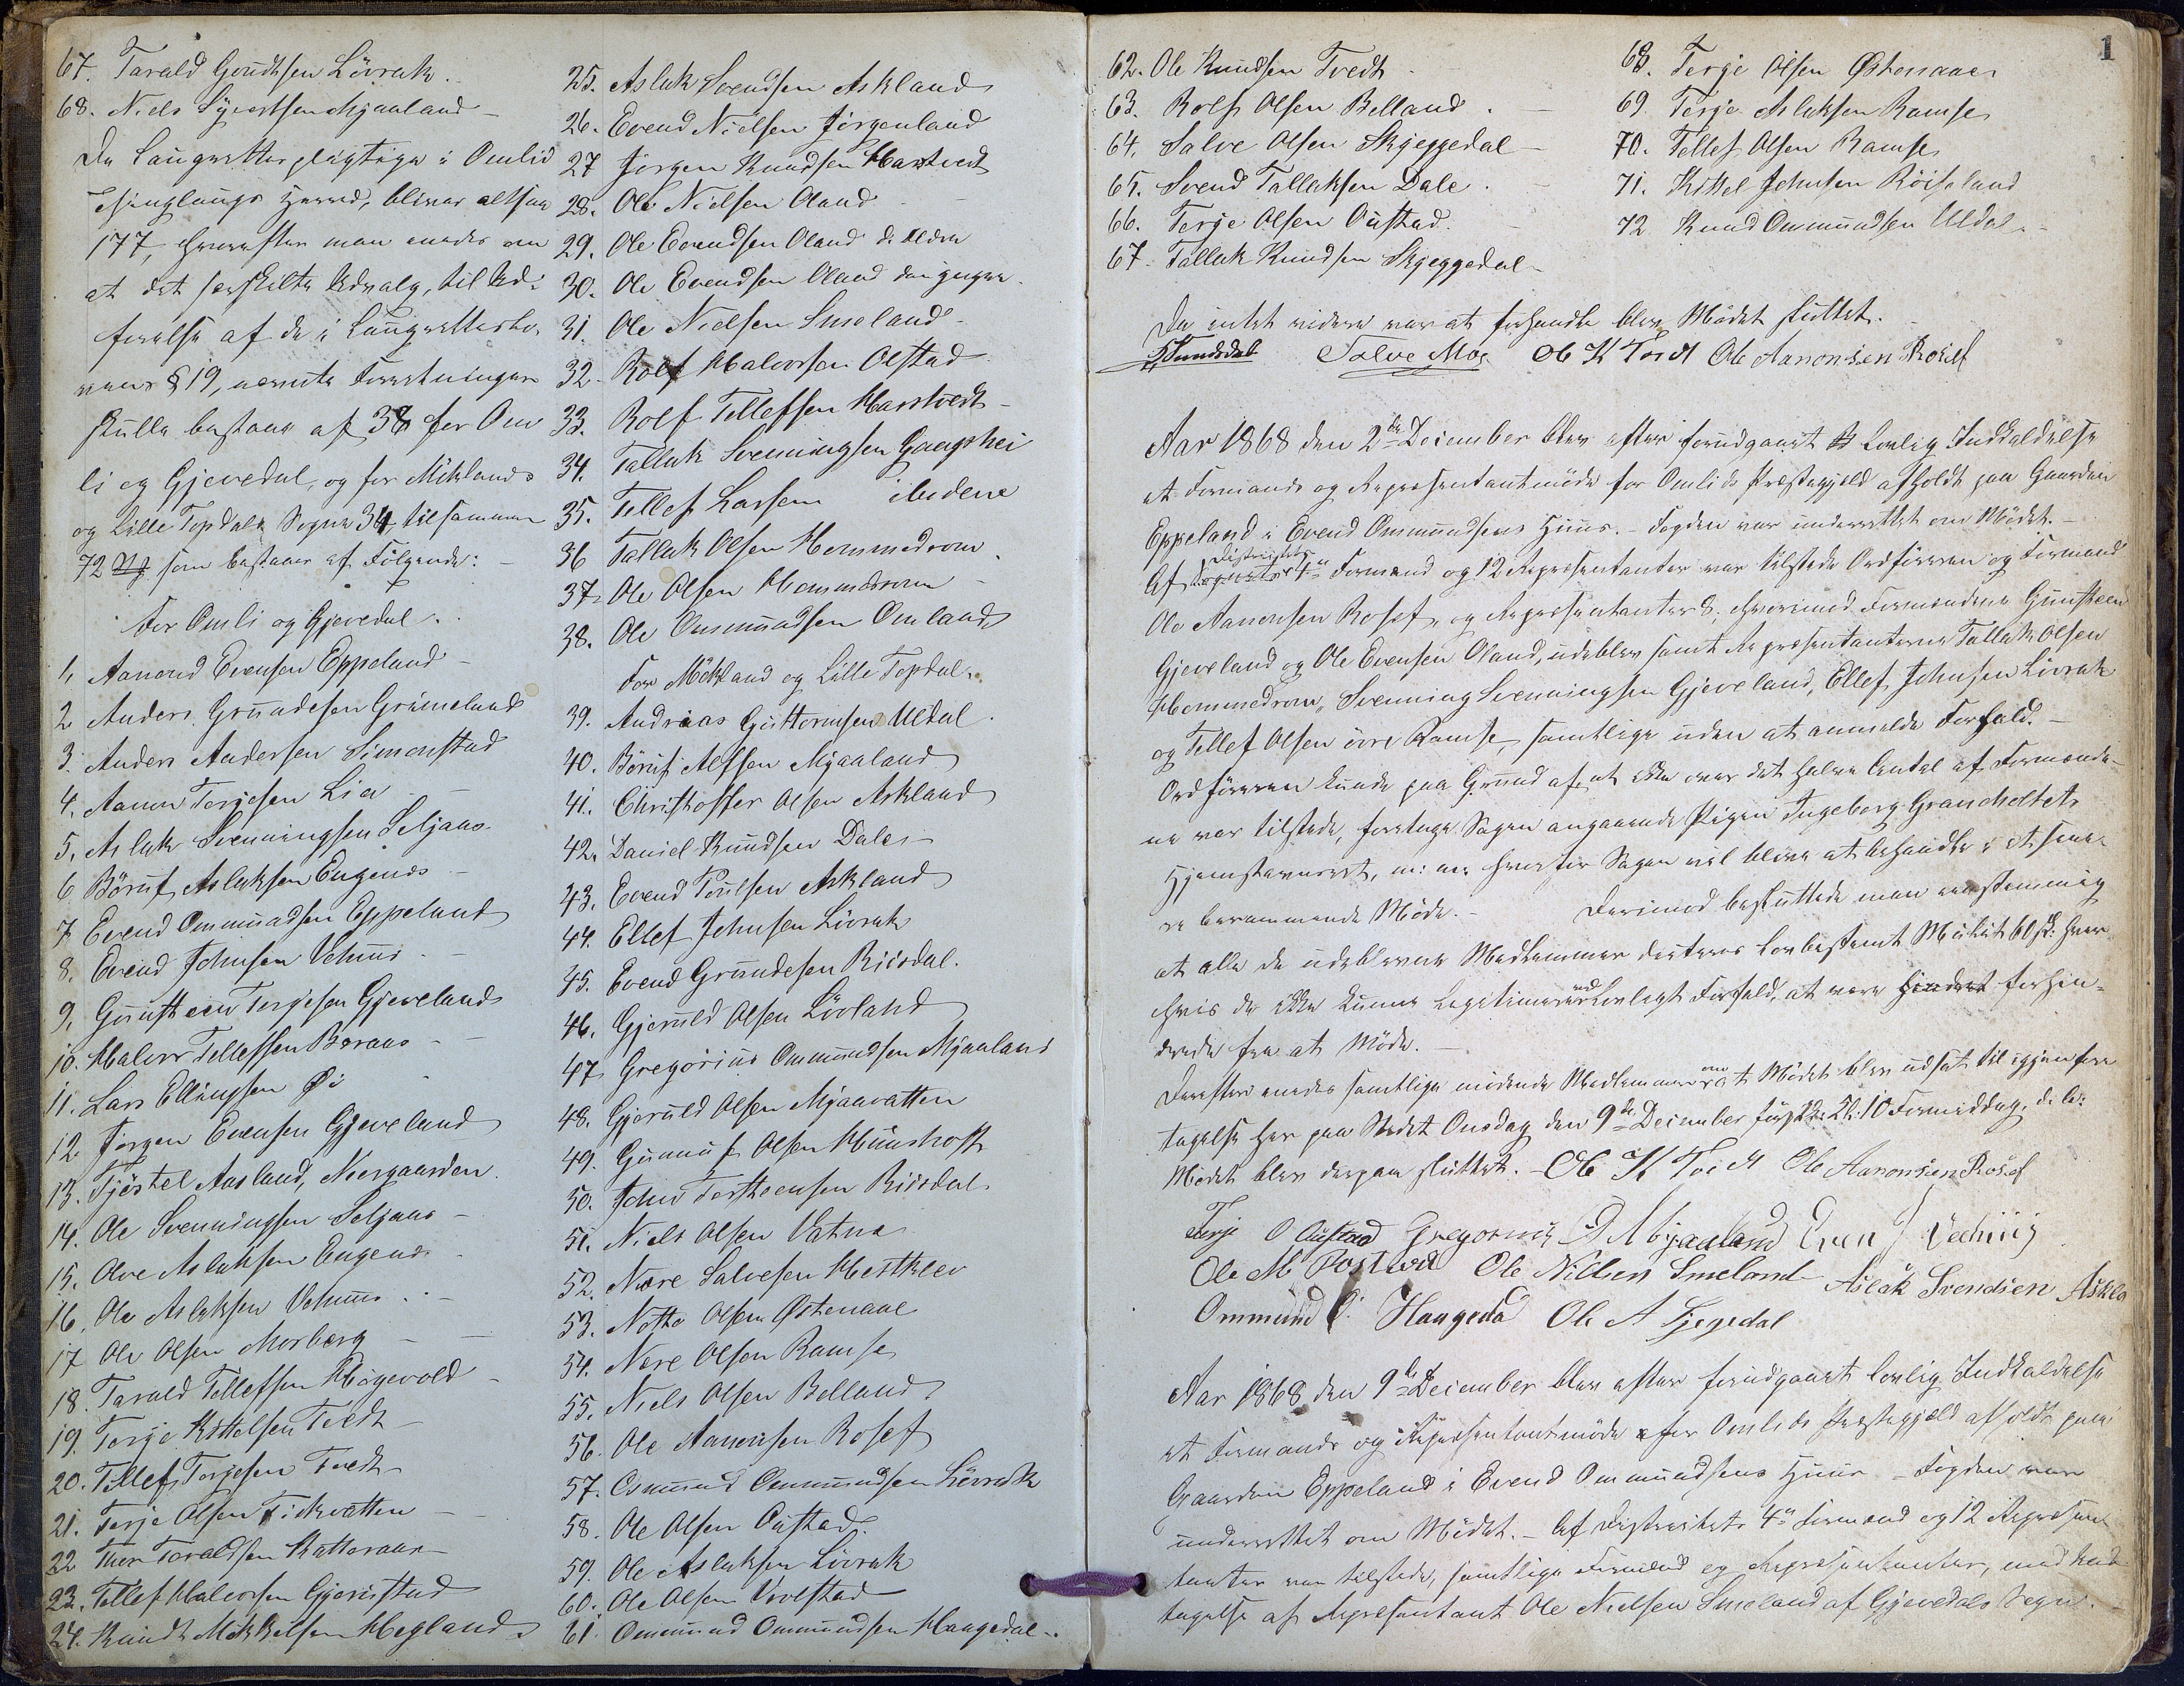 67. Tarald Gundersen Lövrak.
68. Niels Syvertsen Mjaaland –
De Laugrettespligtige i Omlid
Thinglaugs Herred, bliver altsaa
177, hvorefter man enedes om
at det særskilte Udvalg, til Ud-
førelse af de i Laugrettesloven
§ 19, nævnte Forretninger
skulle bestaae af 38 for Om
li og Gjevedal, og for Mÿklands
og Lille Topdals Sogne 34 tilsammen
72 som bestaaer af Følgende:
For Omli og Gjevedal.
1, Aanond Evensen Eppeland –
2 Anders Grundesen Grimeland
3. Anders Andersen Simonstad
4. Aanon Terjesen Lia –
5, Aslak Svenningsen Seljaas
6 Böruf Aslaksen Engenes –
7 Evend Ommundsen Eppeland
8. Evend Johnsen Vehuus –
9, Gunsteen Terjesen Gjeveland
10. Halvor Tellefsen Boraas –
11. Lars Ellingsen Öi
12 Jörgen Evensen Gjeveland
13. Tjöstel Aasland, Noergaarden.
14. Ole Svenningsen Seljaas –
15. Olve Aslaksen Engenes
16. Ole Aslaksen Vehuus –
17 Ole Olsen Morberg –
18. Tarald Tellefsen Högevold –
19. Terje Kittelsen Tvedt –
20. Tellef Terjesen Tvedt
21. Terje Olsen Fiskvatten –
22 Thor Taraldsen Katteraas –
23. Tellef Halvorsen Gjerustad
24. Knudt Mikkelsen Hegland
25. Aslak Svendsen Askland
26. Evend Nielsen Jörgenland
27 Jörgen Knudsen Hartvedt
28. Ole Nielsen Oland –
29. Ole Evendsen Oland d. Ældre
30. Ole Evendsen Oland den yngre.
31. Ole Nielsen Smeland –
32. Rolf Halvorsen Olstad
33. Rolf Tellefsen Harstvedt –
34. Tallak Svenningsen Gangshei
35. Tellef Larsen ibidene
36 Tallak Olsen Hommedrom.
37. Ole Olsen Hommedrom –
38. Ole Ommundsen Omland
For Mÿkland og Lille Topdal.
39. Andreas Guttormsen Uldal.
40. Böruf Alfsen Mjaaland
41. Christoffer Olsen Askland
42. Daniel Knudsen Dale –
43. Evend Poulsen Askland
44. Ellef Johnsen Lövrak
45. Evend Grundesen Riisdal.
46. Gjeruld Olsen Lövland
47 Gregorius Ommundsen Mjaaland
48. Gjeruld Olsen Mjaavatten
49. Gunnuf Olsen Hünshoft
50. John Torsteensen Riisdal.
51. Niels Olsen Vatne
52. Nære Salvesen Hestklev
53. Notto Olsen Østenaae
54. Nære Olsen Ramse
55. Niels Olsen Belland
56. Ole Aanonsen Rosef
57. Osmund Ommundsen Lövrak
58. Ole Olsen Oustad.
59. Ole Aslaksen Lövrak
60. Ole Olsen Vevlstad
61. Ommund Ommundsen Haugedal –
1
62. Ole Knudsen Tvedt –
63. Rolf Olsen Belland. –
64. Salve Olsen Skjeggedal –
65. Svend Tallaksen Dale. –
66. Terje Olsen Oustad. –
67. Tallak Knudsen Skjeggedal –
68. Terje Olsen Østenaae
69. Terje Aslaksen Ramse
70. Tellef Olsen Ramse
71. Kittel Johnsen Röiseland
72 Knud Ommundsen Uldal –
Da intet videre var at forhandle blev Mödet sluttet.
Salve Moe Ole K Tvedt Ole Aanonsen Rosef
Aar 1868 den 2de December blev efter forudgaaet Lovlig Indkaldelse
et Formands og Repræsentantmöde for Omlids Præstegjeld afholdt paa Gaarden
Eppeland i Evend Ommundsens Huus. – Fogden var underrettet om Mödet. –
Af Distriktets 4re Formænd og 12 Repræsentanter var tilstede Ordföreren og Formand
Ole Aanonsen Rosef, og Repræsentanter 8, hvorimod Formændene Gunsteen
Gjeveland og Ole Evensen Oland, udeblev samt Repræsentanterne Tallak Olsen
Hommedrom, Svenning Svenningsen Gjeveland, Ellef Johnsen Lövrak
og Tellef Olsen övre Ramse, samtlige uden at anmelde Forfald. –
Ordföreren kunde paa Grund af at ikke over det halve Antal af Formænde-
ne var tilstede, foretage Sagen angaaende Pigen Ingeborg Grancholtets
Hjemstavnsret, m: m: hvorfor Sagen vil blive at behandle i et sene-
re berammende Möde. – Derimod besluttede man eenstemmig
at alle de udeblevne Medlemmer dicteres lovbestemt Mulct 60 sk: hver
hvis de ikke kunne legitimere ved Lovlegt Forfald, at være forhin-
drede fra at Möde. –
Derefter enedes samtlige mödende Medlemmer om at Mödet blev udsat til igjenfore
tagelse her paa Stedet Onsdag den 9de December förstk: Kl: 10 Formiddag.
Mödet blev derpaa sluttet. – Ole K Tvedt Ole Aanonsen Rosef
Terje O Oustad Gregorius O Mjaaland Even J Veehuus
Ole Nillsen Smeland Aslak Svendsen Askla
Ommund O. Haugeda Ole A Sjegedal
Aar 1868 den 9de December blev efter forudgaaet lovlig Indkaldelse
et Formands og Repræsentantmöde for Omlids Præstegjæld afholdt paa
Gaarden Eppeland i Evend Ommundsens Huus – Fogden var
underrettet om Mödet. – Af Distriktets 4re Formænd og 12 Repræsen
tanter var tilstede, samtlige Formænd og Repræsentanter, med und-
tagelse af Repræsentant Ole Nielsen Smeland af Gjevedals Sogn. –